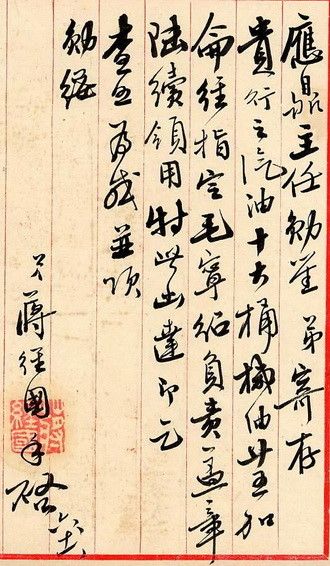 應鼎主任勛鑒 弟寄存
貴行之汽油十大桶機油廿五加
侖經指定毛寧紹負責蓋章
陸續領用特此函達即乞
查照為感並頌
勛綏
弟蔣經國手啟